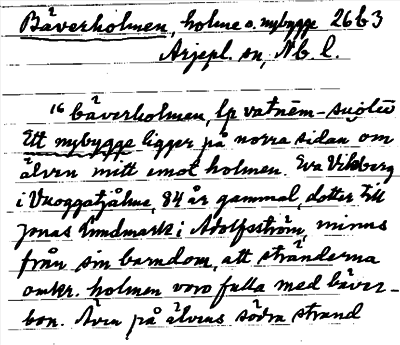 Bäverholmen, holme o. nybygge 26b3
Arjepl. sn, Nb. l.
16 bäverholmen, lp vatnēm-suolū
Ett nybygge ligger på norra sidan om
älven mitt emot holmen. Eva Viksberg
i Vuoggatjålme, 84 år gammal, dotter till
Jonas Lindmark i Adolfsström, minns
från sin barndom, att stränderna
omkr. holmen voro fulla med bäver-
bon. Även på älvens södra strand